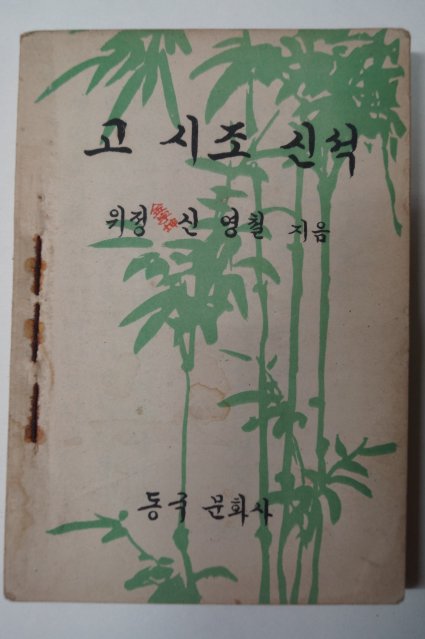 고 시조 신석
위정 신 영철 지음
동국 문화사